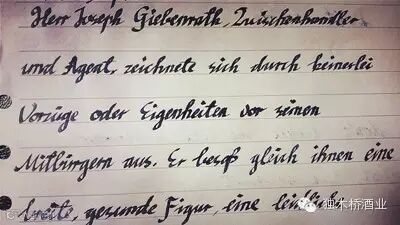 Herr Joseph Giebenrath, Zwischenhandler
und Agent, zeichnete sich durch keinerlei
Vorzüge oder Eigenheiten vor seinen
Mitbürgern aus. Er besaß gleich ihnen eine
breite, gesunde Figur, eine
独木桥酒业